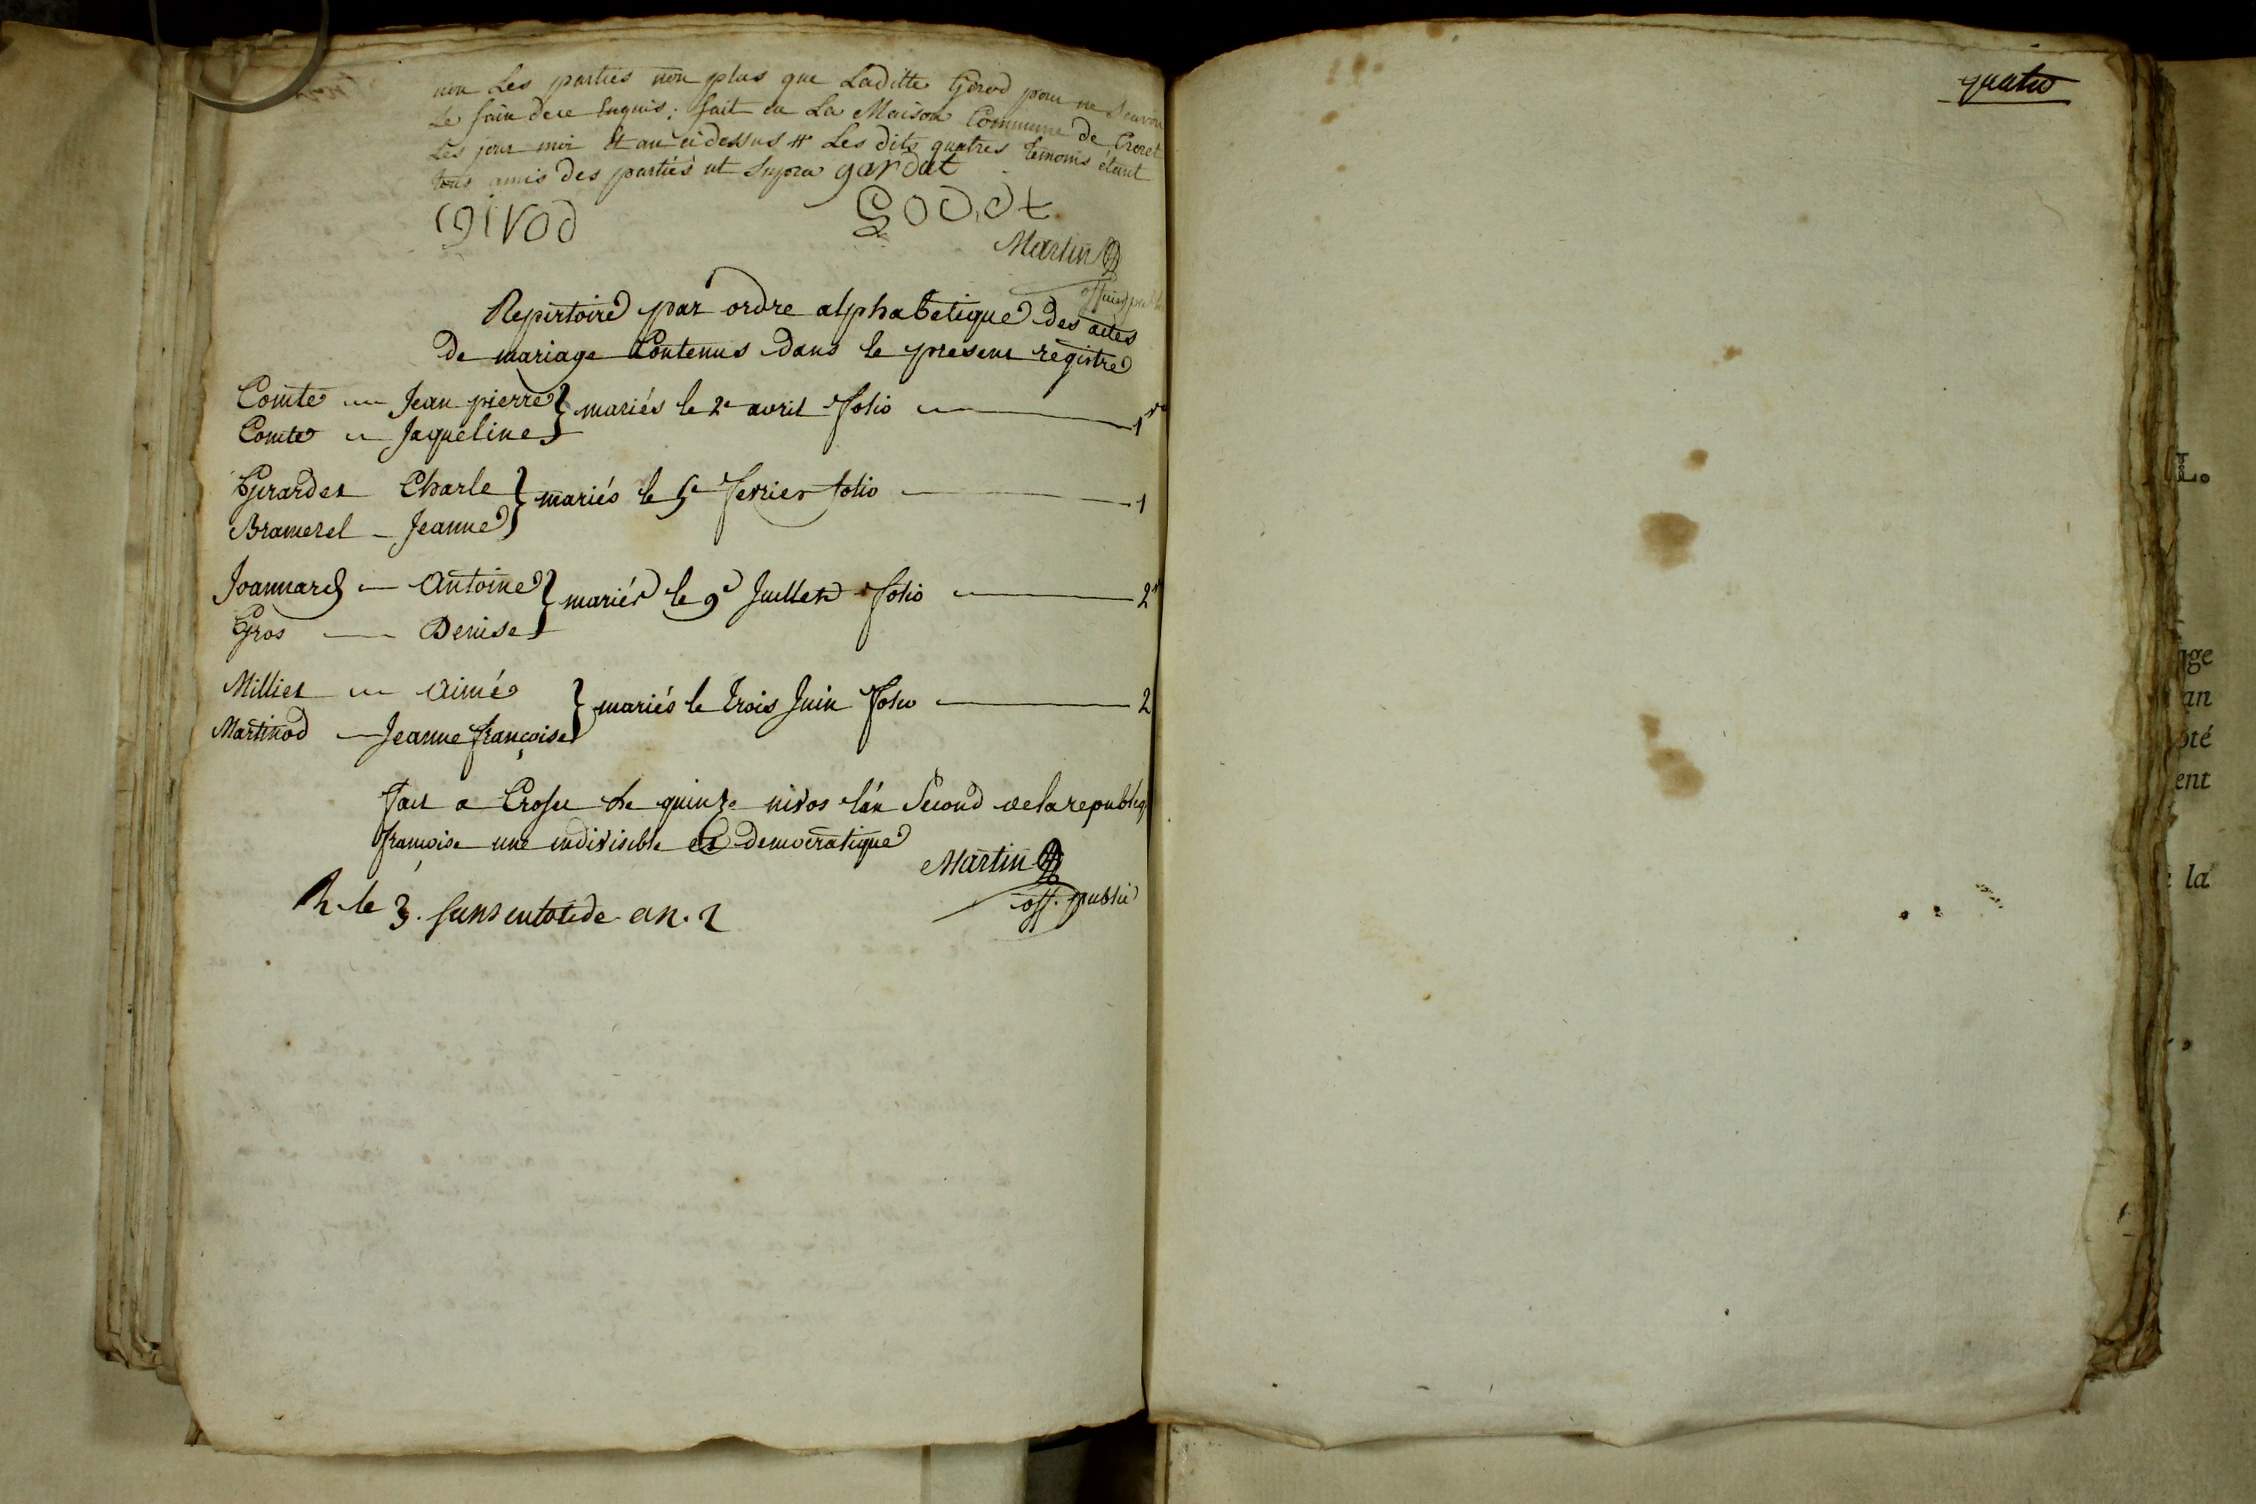 non Les parties non plus que Laditte Girod pour ne Scavoir
Le faire de ce Enquis; fait en La Maison Commune de Crozet
Les jour moi Et an ci dessus # Les dits quatres temoins étant
tous amis des parties ut Supra gardat
girod
Godet
Martin
officier public
Repertoire par ordre alphabetique des actes
de mariage Contenus dans le present registre
Comte Jean pierre } mariés le 2e avril folio 1 vo
Comte Jaqueline
Girardet Charle } mariés le 5e fevrier folio 1
Brameret Jeanne
Joannard Antoine } mariés le 9e Juillet folio 2
Gros Denise
Milliet Aimé } mariés le trois Juin folio 2
Martinod Jeanne françoise
fait a Croset le quinze nivos l'an Second de la republiq
françoise une indivisible et democratique
Martin
off. public
R. le 3. sans culotide an. 2
quatre
L.
age
an
oté
ent
la